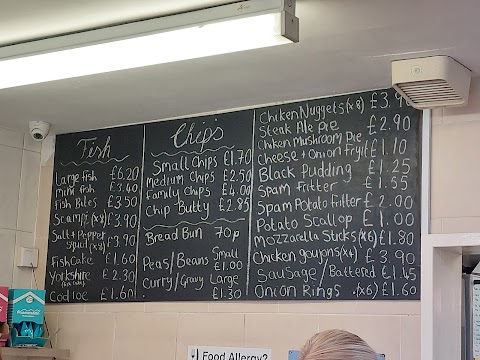 Fish
Large fish £6.20
mini fish £3.40
Fish Bites £3.50
Scampi (x8) £3.90
Salt + Pepper
squid (x8) £3.90
Fish Cake £1.60
Yorkshire £2.30
Cod roe £1.60
Chips
Small Chips £1.70
Medium Chips £2.50
Family Chips £4.00
Chip Butty £2.85
Bread Bun 70p
Peas/Beans Small
£1.00
Curry/Gravy Large
£1.30
Chicken Nuggets (x8) £3.90
Steak Ale Pie £2.90
Chicken Mushroom Pie
Cheese + Onion Fryit £1.10
Black Pudding £1.25
Spam Fritter £1.55
Spam Potato Fitter £2.00
Potato Scallop £1.00
Mozzarella Sticks (x6) £1.80
Chicken goujons (x4) £3.90
Sausage / Battered £1.45
Onion Rings (x6) £1.60
Food Allergy?